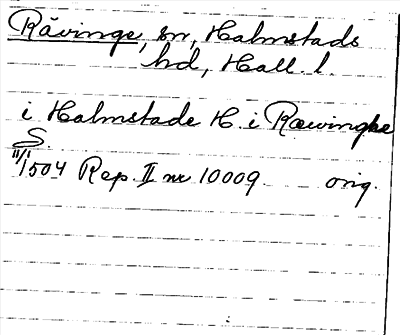 Råvinge, sn, Halmstads
hd, Hall. l.
i Halmstade H. i Ræwinghe
S.
11/1 1504 Rep. II nr 10009. orig.